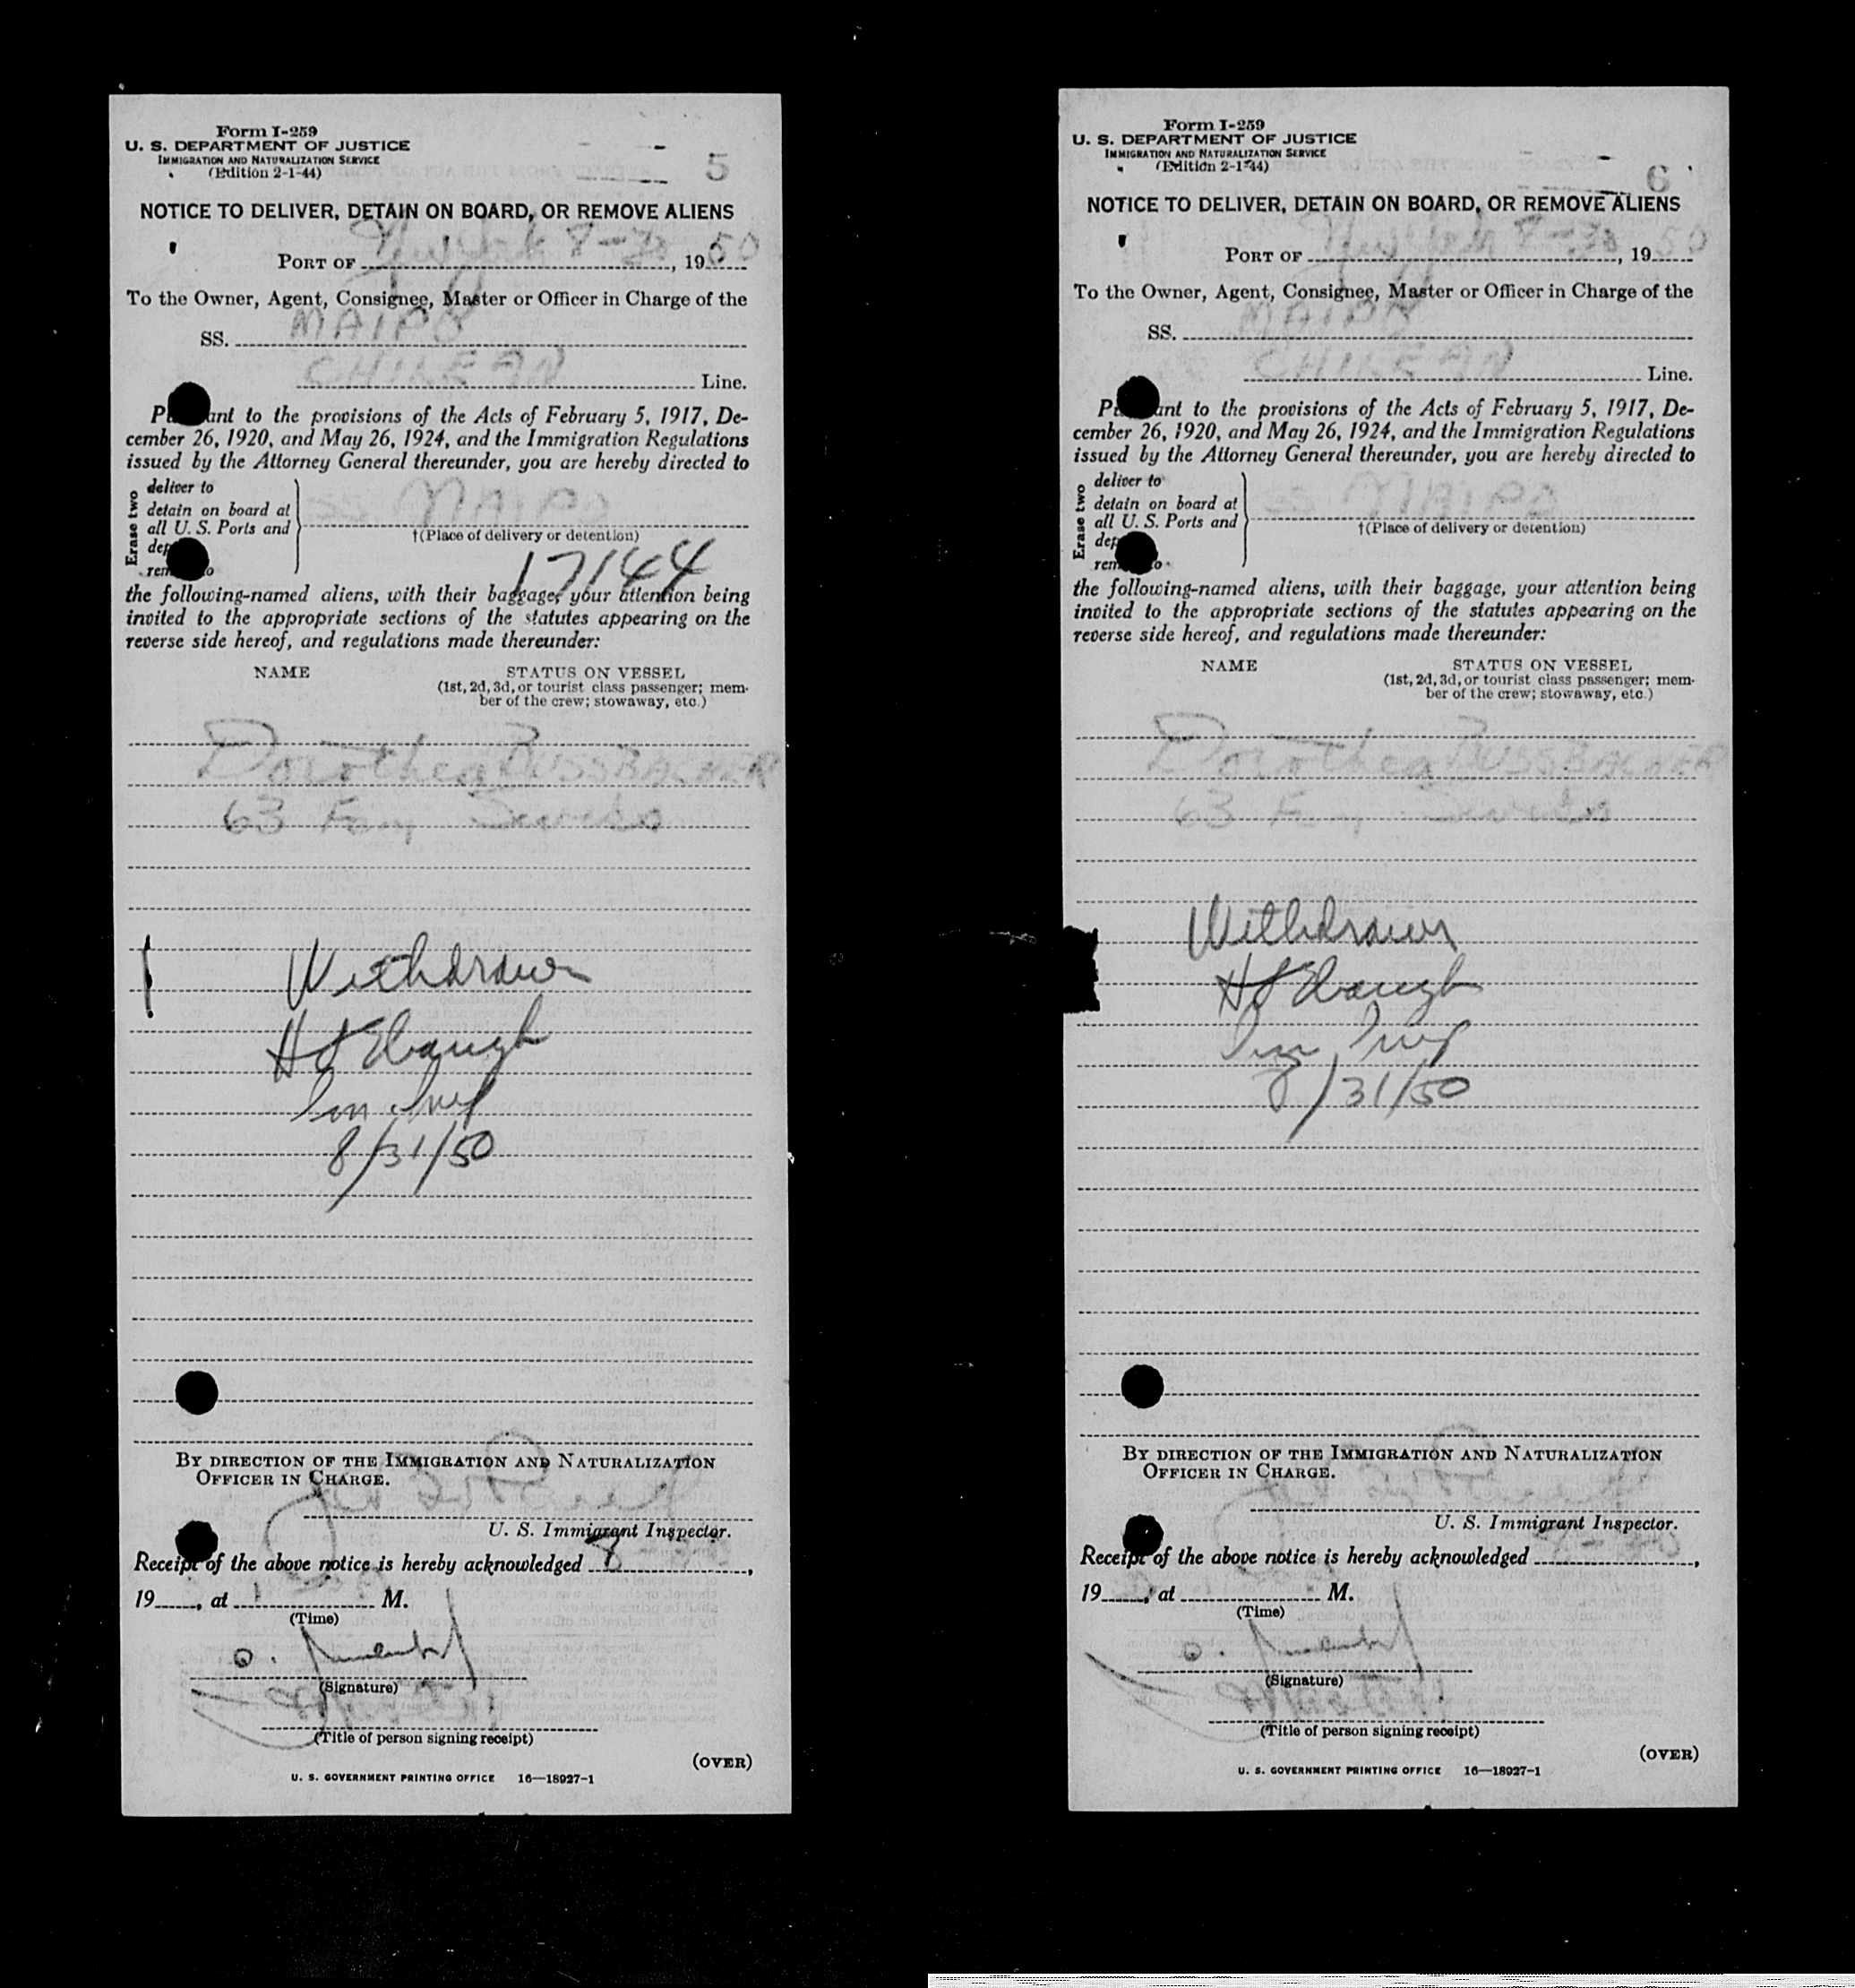 Form I-259
U. S. DEPARTMENT OF JUSTICE
IMMIGRATION AND NATURALIZATION SERVICE
(Edition 2-1-44)
5
NOTICE TO DELIVER, DETAIN ON BOARD, OR REMOVE ALIENS
PORT OF New York 8-30, 1950
To the Owner, Agent, Consignee, Master or Officer in Charge of the
SS. MAIPO
CHILEAN Line.
Pursuant to the provisions of the Acts of February 5, 1917, De-
cember 26, 1920, and May 26, 1924, and the Immigration Regulations
issued by the Attorney General thereunder, you are hereby directed to
Erase two
deliver to
detain on board at
all U. S. Ports and
SS MAIPO
†(Place of delivery or detention)
17144
the following-named aliens, with their baggage, your attention being
invited to the appropriate sections of the statutes appearing on the
reverse side hereof, and regulations made thereunder:
NAME STATUS ON VESSEL
(1st, 2d, 3d, or tourist class passenger; mem-
ber of the crew; stowaway, etc.)
Dorothea BUSSBACHER
63 Fem
Withdrawn
H J Ebaugh
Im Insp
8/31/50
BY DIRECTION OF THE IMMIGRATION AND NATURALIZATION
OFFICER IN CHARGE.
U. S. Immigrant Inspector.
Receipt of the above notice is hereby acknowledged 8-30,
19, at M.
(Time)
O.
(Signature)
(Title of person signing receipt)
(OVER)
U. S. GOVERNMENT PRINTING OFFICE 16—18927-1
Form I-259
U. S. DEPARTMENT OF JUSTICE
IMMIGRATION AND NATURALIZATION SERVICE
(Edition 2-1-44)
6
NOTICE TO DELIVER, DETAIN ON BOARD, OR REMOVE ALIENS
PORT OF New York 8-30, 1950
To the Owner, Agent, Consignee, Master or Officer in Charge of the
SS. MAIPO
CHILEAN Line.
Pursuant to the provisions of the Acts of February 5, 1917, De-
cember 26, 1920, and May 26, 1924, and the Immigration Regulations
issued by the Attorney General thereunder, you are hereby directed to
Erase two
deliver to
detain on board at
all U. S. Ports and
SS MAIPO
†(Place of delivery or detention)
the following-named aliens, with their baggage, your attention being
invited to the appropriate sections of the statutes appearing on the
reverse side hereof, and regulations made thereunder:
NAME STATUS ON VESSEL
(1st, 2d, 3d, or tourist class passenger; mem-
ber of the crew; stowaway, etc.)
Dorothea BUSSBACHER
63
Withdrawn
H J Ebaugh
Im Insp
8/31/50
BY DIRECTION OF THE IMMIGRATION AND NATURALIZATION
OFFICER IN CHARGE.
U. S. Immigrant Inspector.
Receipt of the above notice is hereby acknowledged 8-30,
19, at M.
(Time)
O.
(Signature)
(Title of person signing receipt)
(OVER)
U. S. GOVERNMENT PRINTING OFFICE 16—18927-1